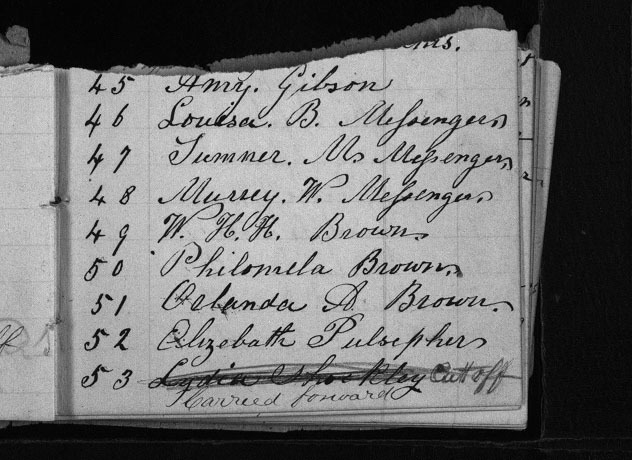 45 Amy. Gibson
46 Louisa. B. Messenger
47 Sumner. M. Messenger
48 Mursey. W. Messenger
49 W. H. H. Brown
50 Philomela Brown
51 Orlanda A. Brown.
52 Elizebath Pulsepher
53 Lydia Shockley Cutt off
Carried forward